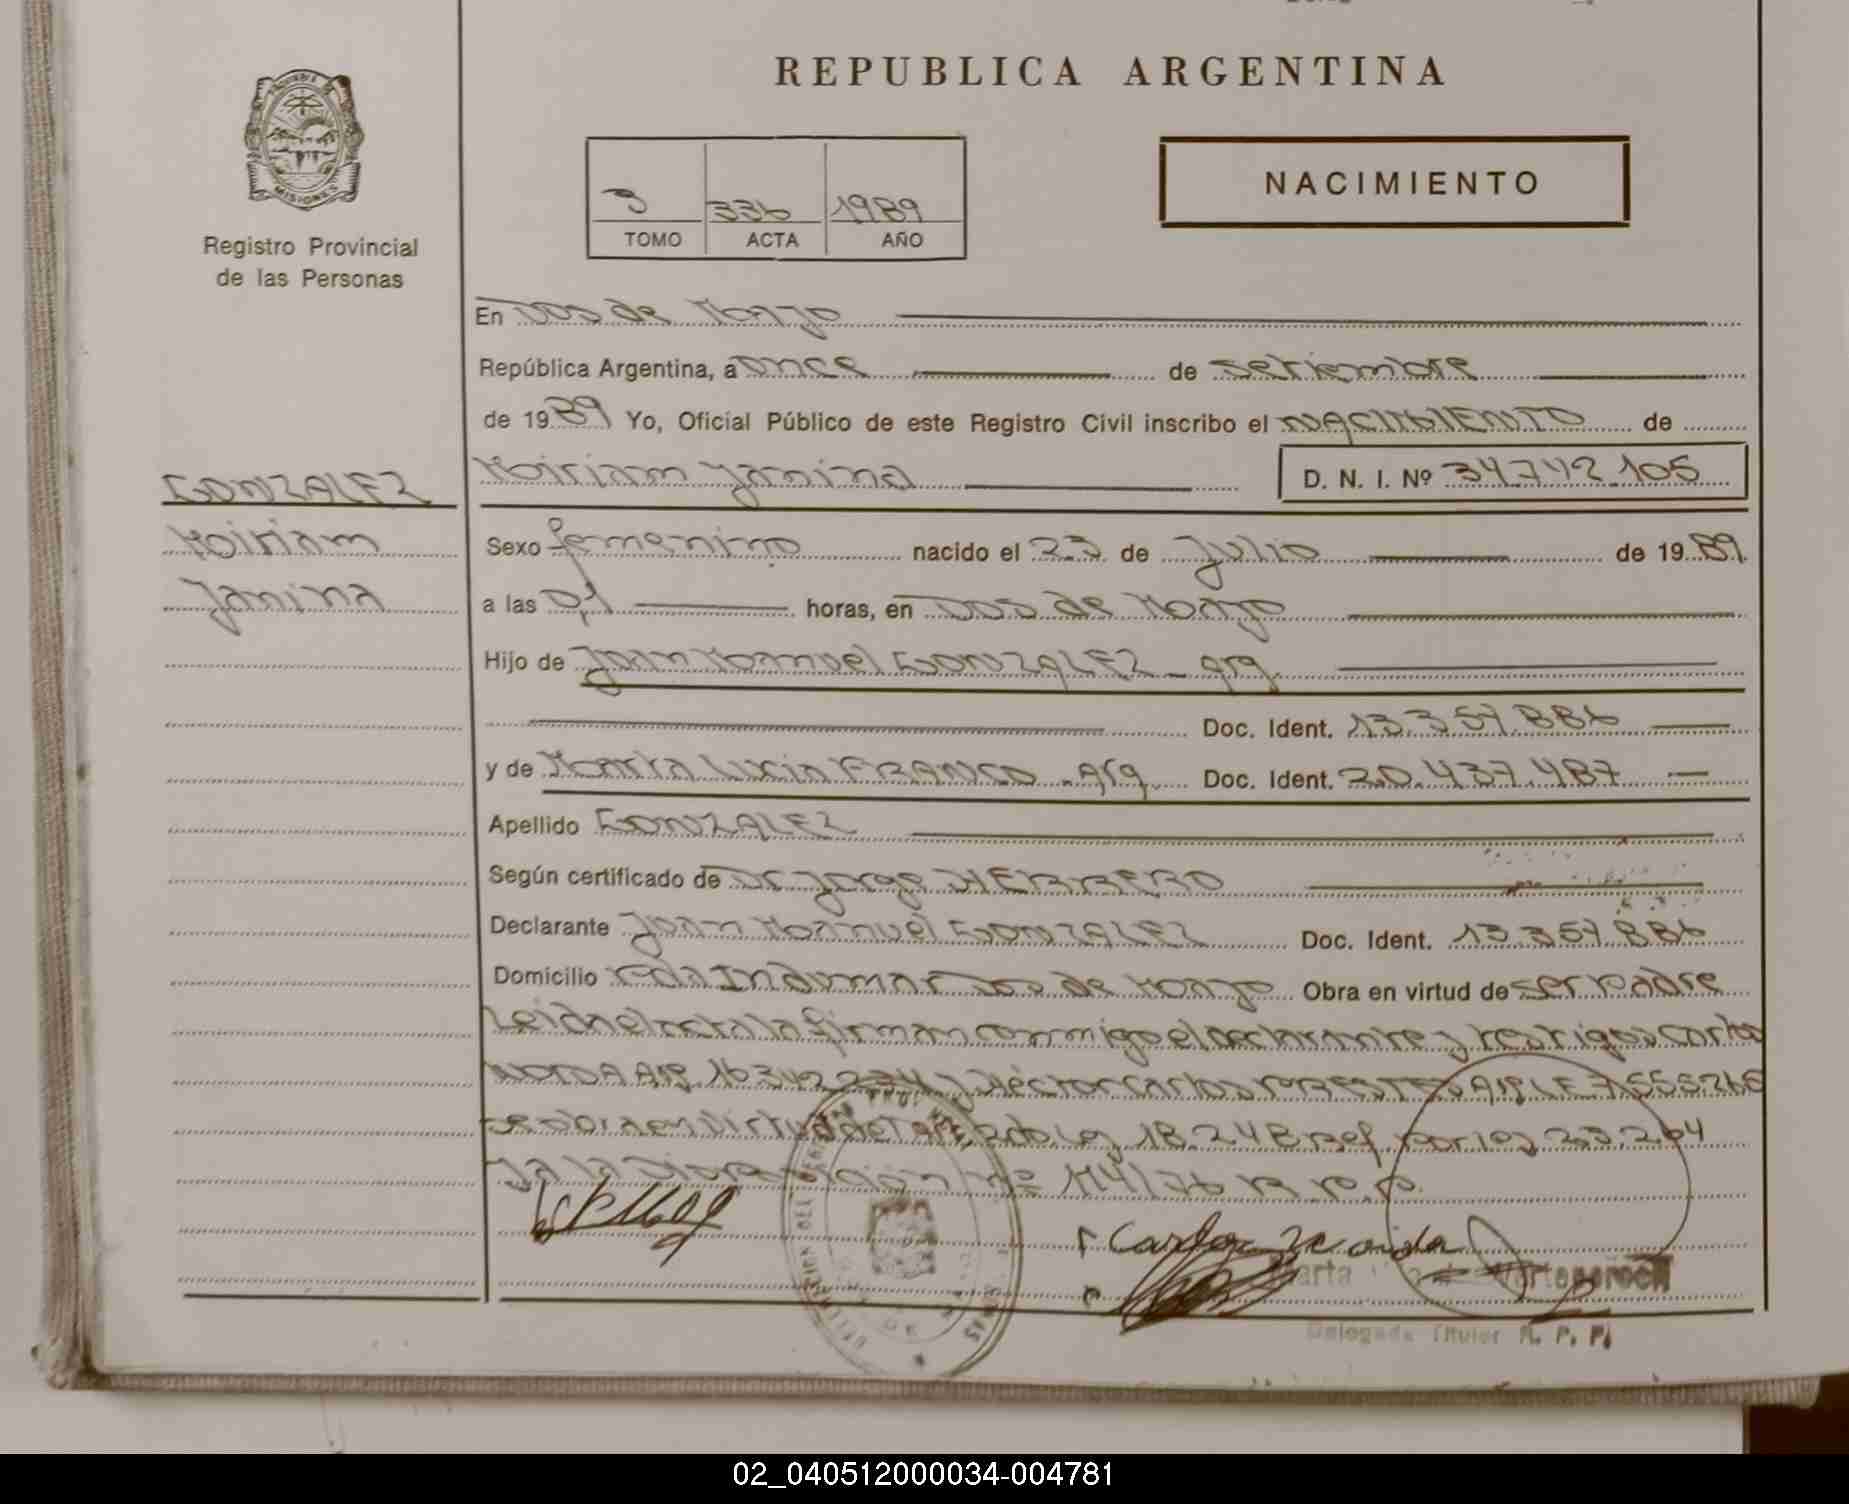 REPUBLICA ARGENTINA
MISIONES
Registro Provincial
de las Personas
3 336 1989
TOMO ACTA AÑO
NACIMIENTO
En Dos de Mayo
República Argentina, a once de setiembre
de 1989 Yo, Oficial Público de este Registro Civil inscribo el NACIMIENTO de
GONZALEZ
Miriam Janina D. N. I. Nº 34.742.105
Miriam
Janina
Sexo femenino nacido el 23 de Julio de 1989
a las 0,1 horas, en Dos de Mayo
Hijo de Juan Manuel GONZALEZ - arg.
Doc. Ident. 13.357.886
y de María Lucia FRANCO - arg. Doc. Ident. 20.437.487
Apellido GONZALEZ
Según certificado de Dr Jorge HERRERO
Declarante Juan Manuel GONZALEZ Doc. Ident. 13.357.886
Domicilio Dos de Mayo Obra en virtud de ser Padre
Leida el acta la firman conmigo el declarante y testigos Carlos
y Héctor Carlos PRESTES 7.555.268
Se obra en virtud de Ley 18.248 por ley 23.264
y a la Disposición Nº 114/76 R.P.P.
Carlos
Marta
Delegada Titular R. P. P.
02_040512000034-004781